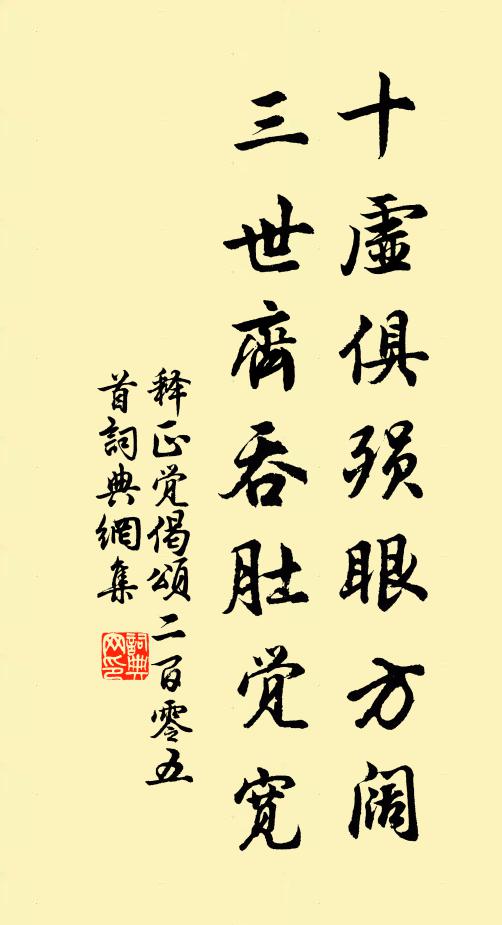 十虚俱殒眼方阔
三世齊吞肚觉宽
释正觉偈頌二百零五
首詞典網集
詞典
网印